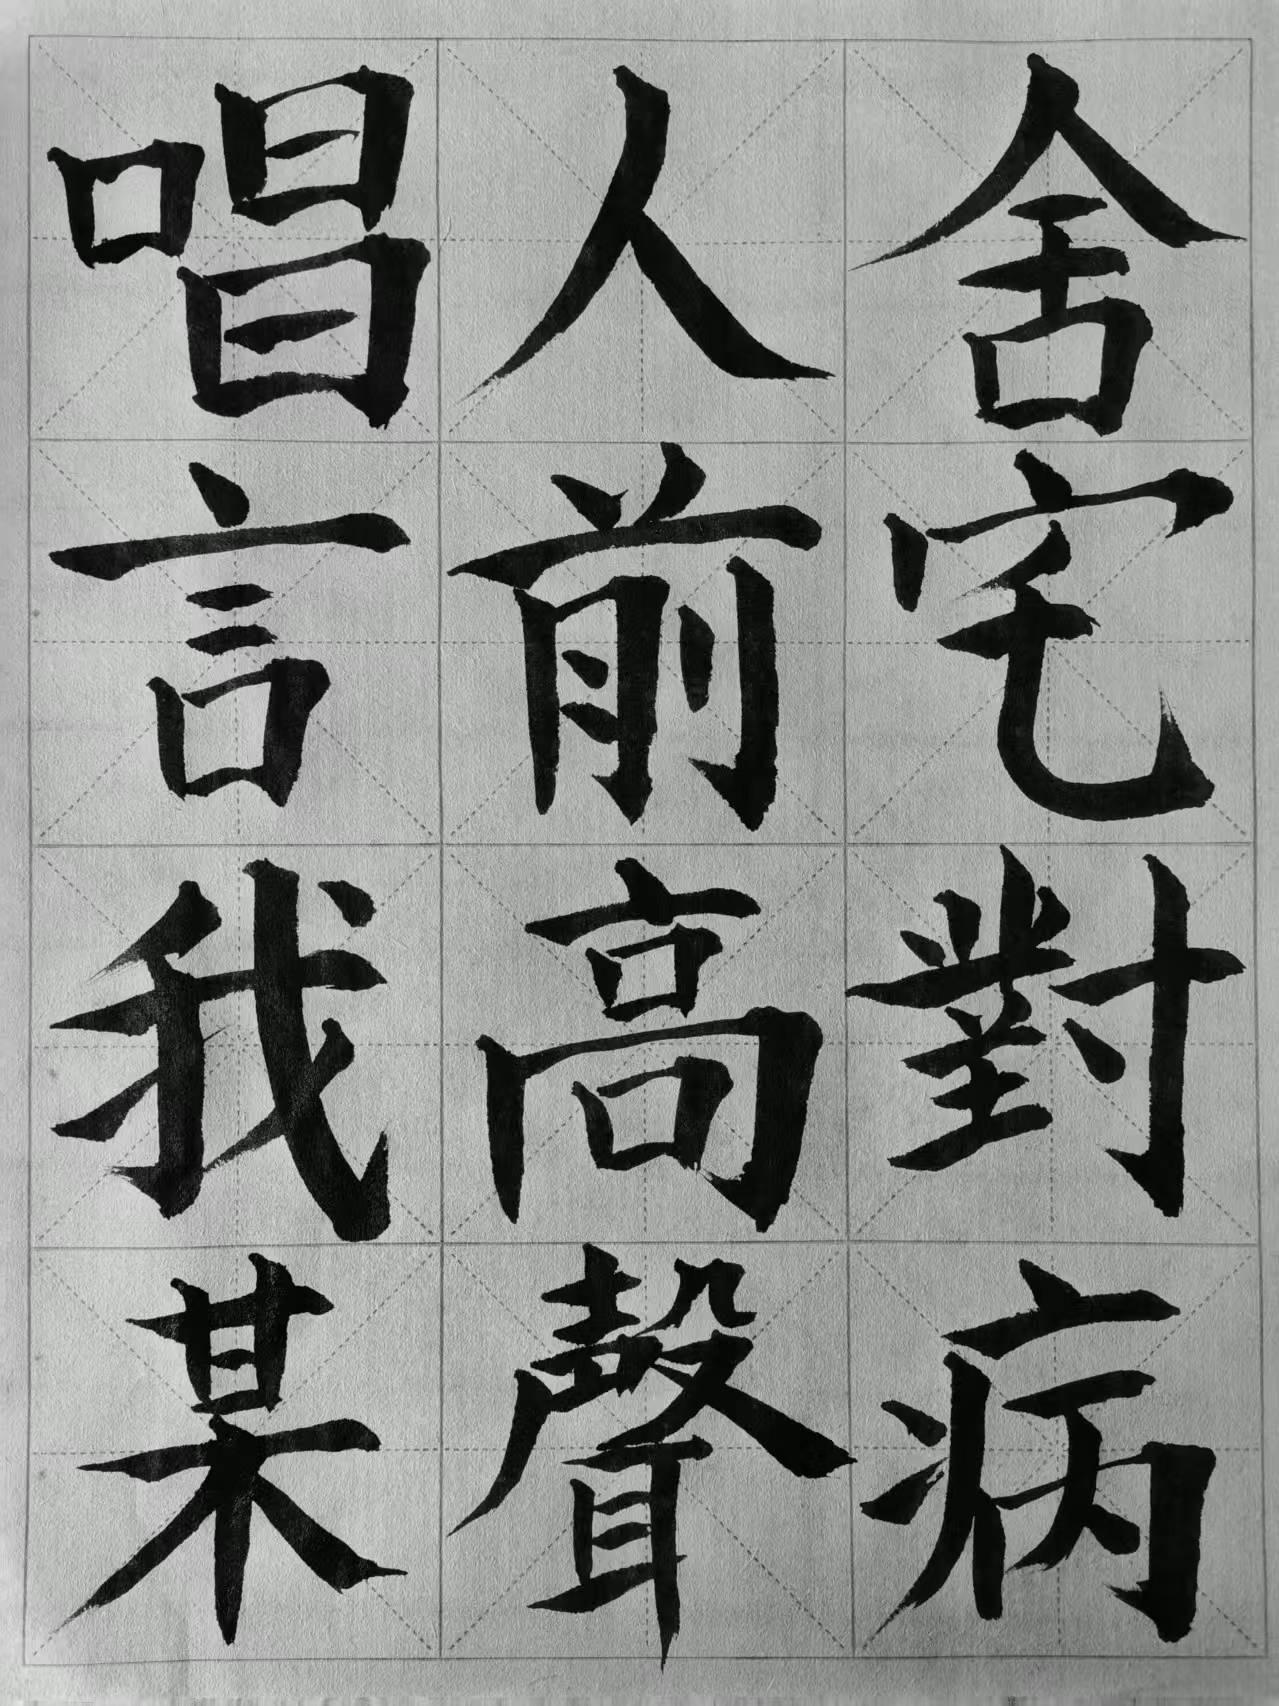 舍宅對病
人前高聲
唱言我某